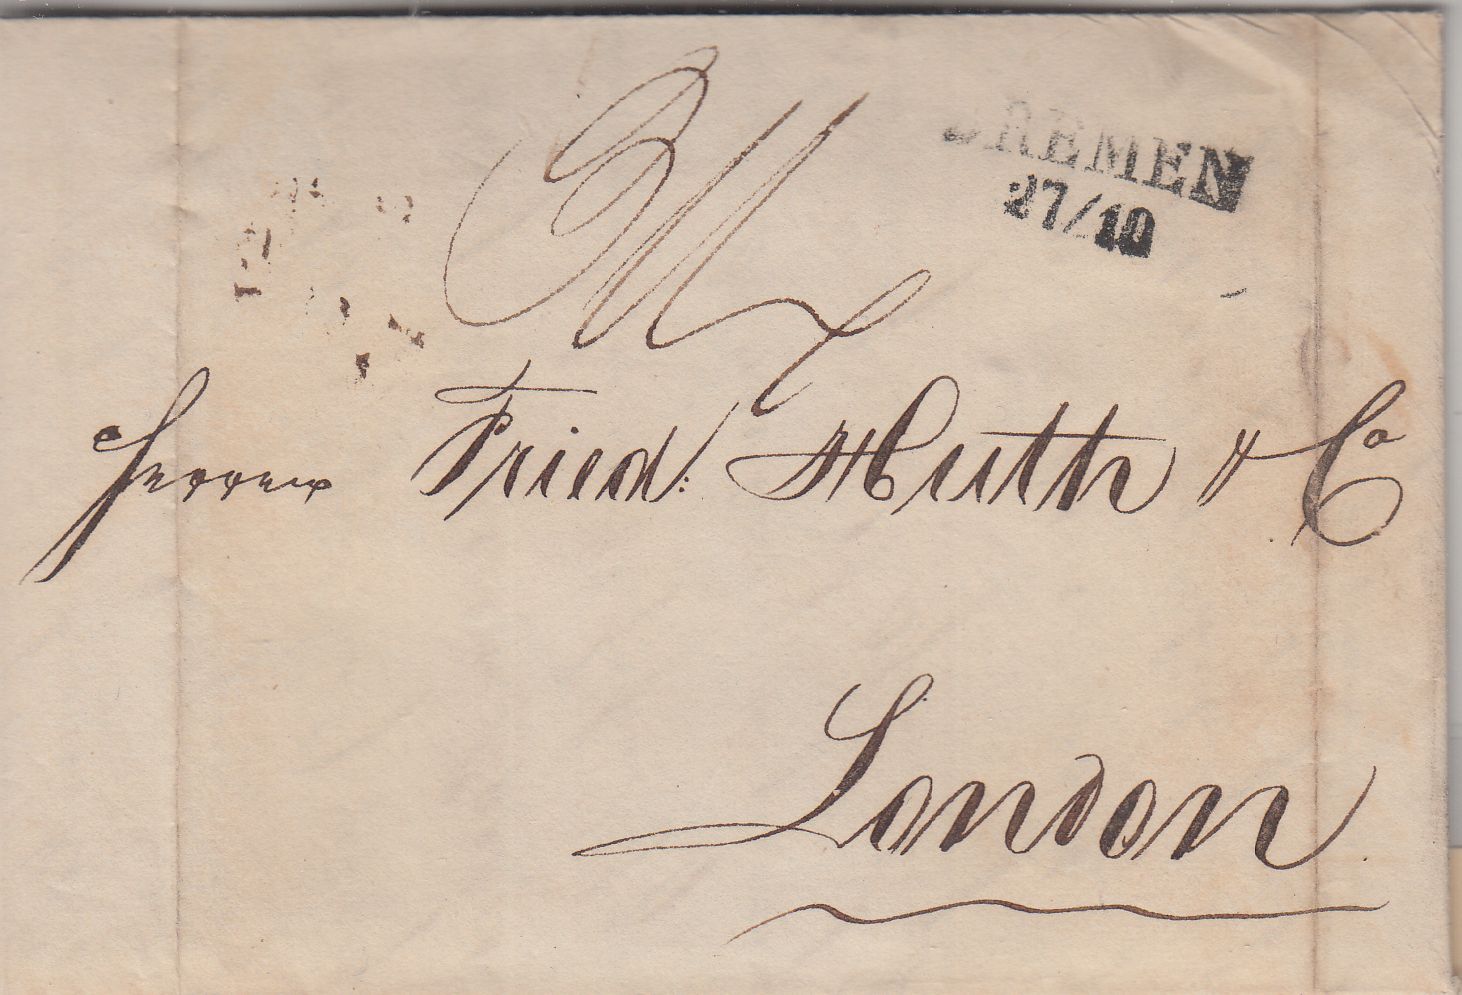 BREMEN
27/10
Herren Fried: Huth & Co
London